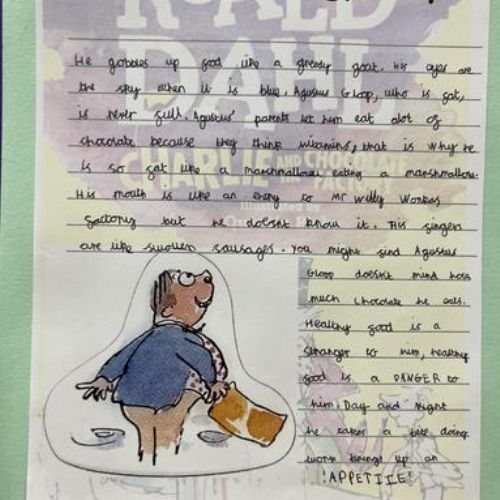 ROALD
DAHL
CHARLIE AND THE CHOCOLATE FACTORY
He gobbles up food like a greedy goat. His eyes are
the sky when it is blue. Agustus Gloop, who is fat,
is never full. Agustus' parents let him eat alot of
chocolate because they think vitamins, that is why he
is so fat like a marshmallow eating a marshmallow.
His mouth is like an entry to Mr Willy Wonkas
factory but he doesnt know it. His fingers
are like swollen sausages. You might find Agustus
Gloop doesnt mind how
much chocolate he eats.
Healthy food is a
stranger to him, healthy
food is a DANGER to
him. Day and night
he takes a bite doing
work brings up an
!APPETITE!